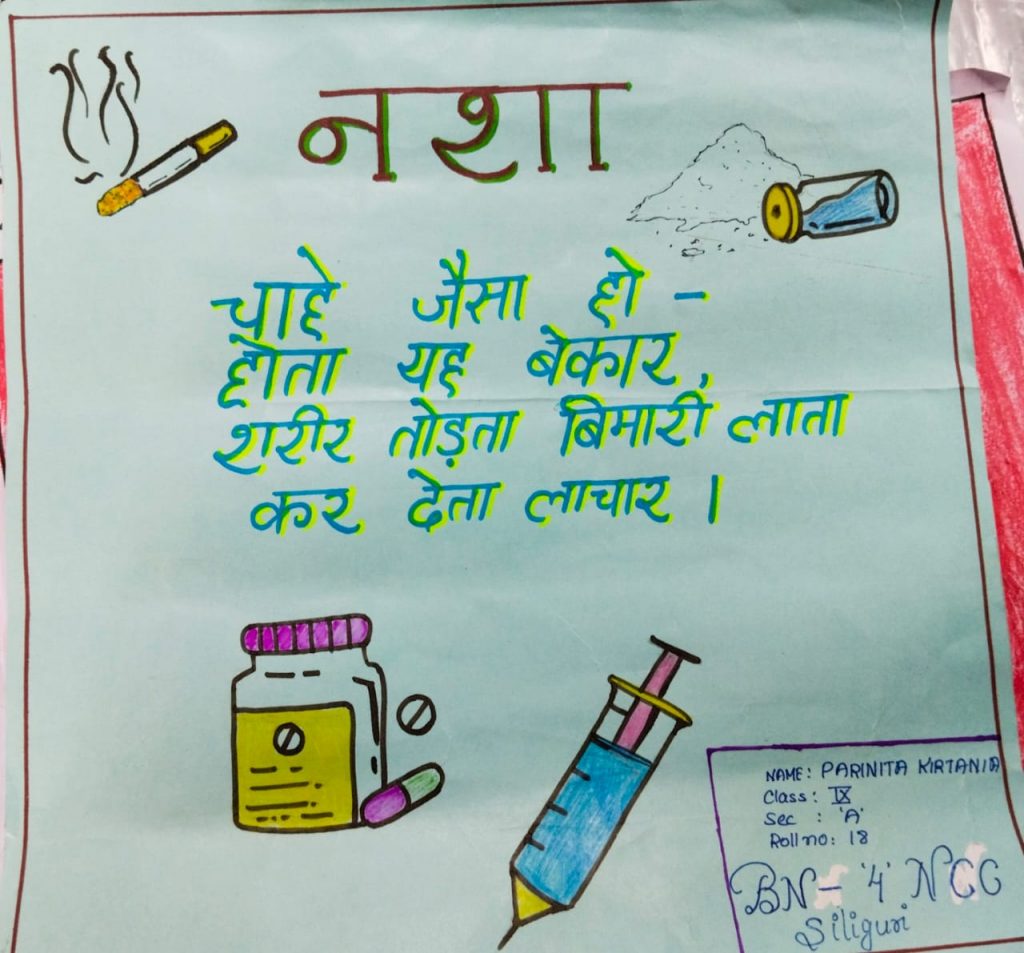 नशा
चाहे जैसा हो -
होता यह बेकार,
शरीर तोड़ता बिमारी लाता
कर देता लाचार ।
NAME: PARINITA KIRTANIA
Class: IX
Sec : 'A'
Roll no: 18
BN - '4' NCC
Siliguri